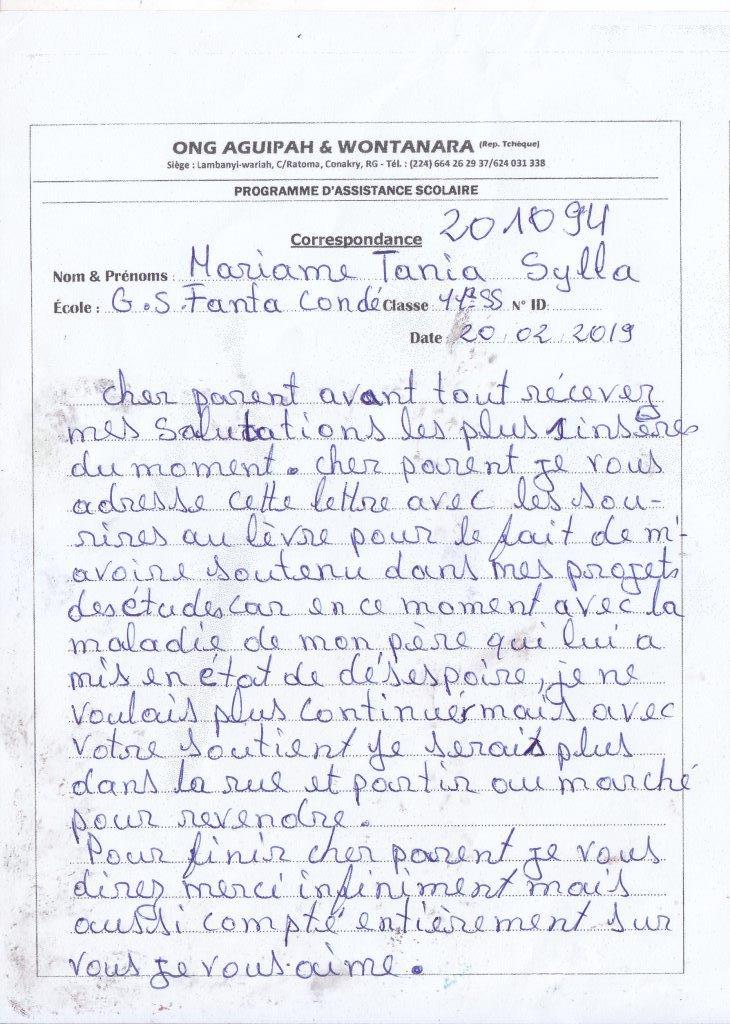 ONG AGUIPAH & WONTANARA (Rep. Tchèque)
Siège : Lambanyi-wariah, C/Ratoma, Conakry, RG - Tél. : (224) 664 26 29 37/624 031 338
PROGRAMME D'ASSISTANCE SCOLAIRE
Correspondance 201094
Nom & Prénoms : Mariame Tania Sylla
École : G.S.Fanta Condé Classe 11e SS N° ID
Date 20 02 2019
cher parent avant tout récever
mes Salutations les plus sinsères
du moment. cher parent je vous
adresse cette lettre avec les sou-
rires au lèvre pour le fait de m'
avoire soutenu dans mes projets
des études car en ce moment avec la
maladie de mon père qui lui a
mis en état de désespoire, je ne
voulais plus continuer mais avec
votre soutient je serais plus
dans la rue et partir au marché
pour revendre.
Pour finir cher parent je vous
direz merci infiniment mais
aussi compté entièrement sur
vous je vous aime.